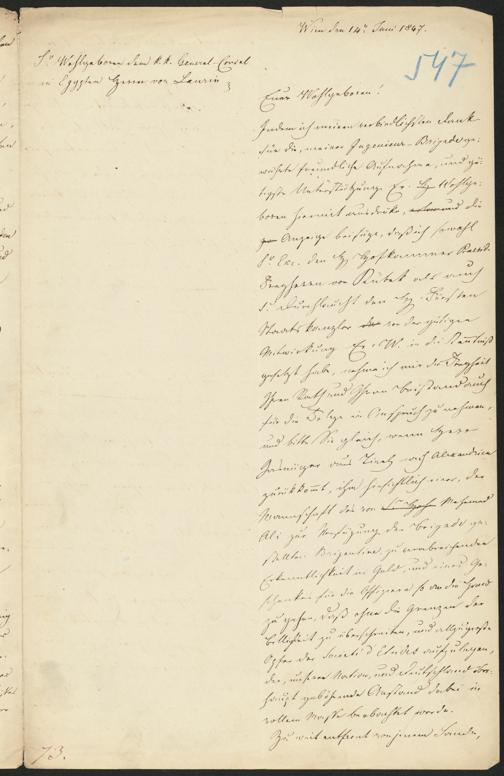 Wien den 14n Juni 1847.
547
Sr. Wohlgeboren dem K.K. General-Consul
in Egypten Herrn von Laurin
Euer Wohlgeboren!
Indem ich meinen verbindlichsten Dank
für die, meiner Ingenieur-Brigade ge-
währte freundliche Aufnahme, und gü-
tigste Unterstützung Er. Wohlge-
boren hiermit ausdrücke, und die
Anzeige beifüge, daß ich sowohl
Sr. Exc. den H. Hofkammer Präsid.
Freyherrn von Kübek als auch
Sr. Durchlaucht den H. Fürsten
Staatskanzler von der gütigen
Mitwirkung Er. W. in die Kenntniß
gesetzt habe, nehme ich mir die Freyheit
Ihren Rath und Ihren Beistand auch
für die Folge in Anspruch zu nehmen,
und bitte Sie gleich, wenn Herr
aus Tineh nach Alexandrien
zurükkommt, ihm hinsichtlich einer, der
Mannschaft des von Mehemed
Ali zur Verfügung der Brigade ge-
stellten Brigantine zu verabreichenden
Erkenntlichkeit in Geld, und eines Ge-
schenkes für die Offiziere so an die Hand
zu gehen, daß ohne die Grenzen der
Billigkeit zu überschreiten, und allzugroße
Opfer der Société d'Etudes aufzulegen,
der, unserer Nation, und Deutschland über-
haupt gebührende Anstand dabei in
vollem Maße beobachtet werde.
Zu weit entfernt von jenem Lande,
73.